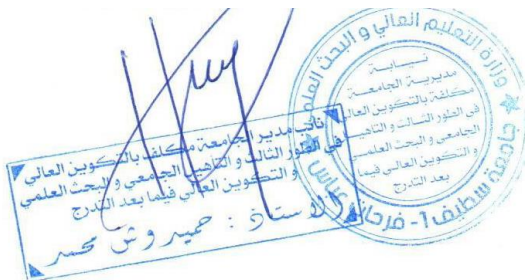 وزارة التعليم العالي و البحث العلمي
جامعة سطيف 1 - فرحات عباس
نيابة
مديرية الجامعة
مكلفة بالتكوين العالي
في الطور الثالث و التأهيل
الجامعي و البحث العلمي
و التكوين العالي فيما
بعد التدرج
نائب مدير الجامعة مكلف بالتكوين العالي
في الطور الثالث و التأهيل الجامعي و البحث العلمي
و التكوين العالي فيما بعد التدرج
الاستاذ : حميدوش محمد